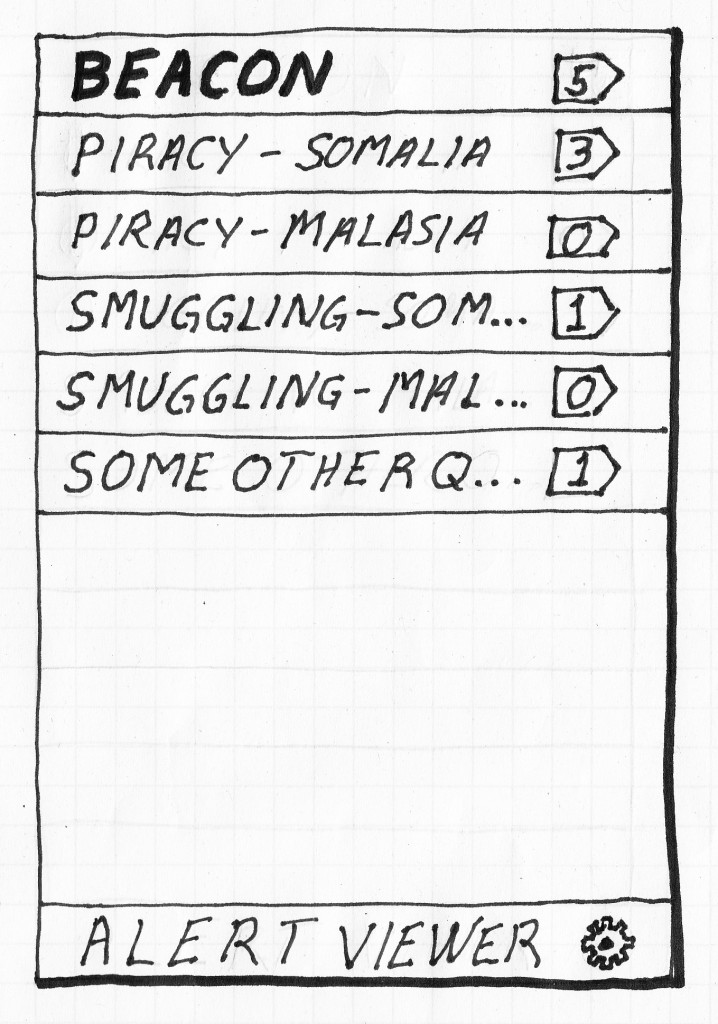 BEACON 5
PIRACY - SOMALIA 3
PIRACY - MALASIA 0
SMUGGLING-SOM... 1
SMUGGLING-MAL... 0
SOME OTHER Q... 1
ALERT VIEWER